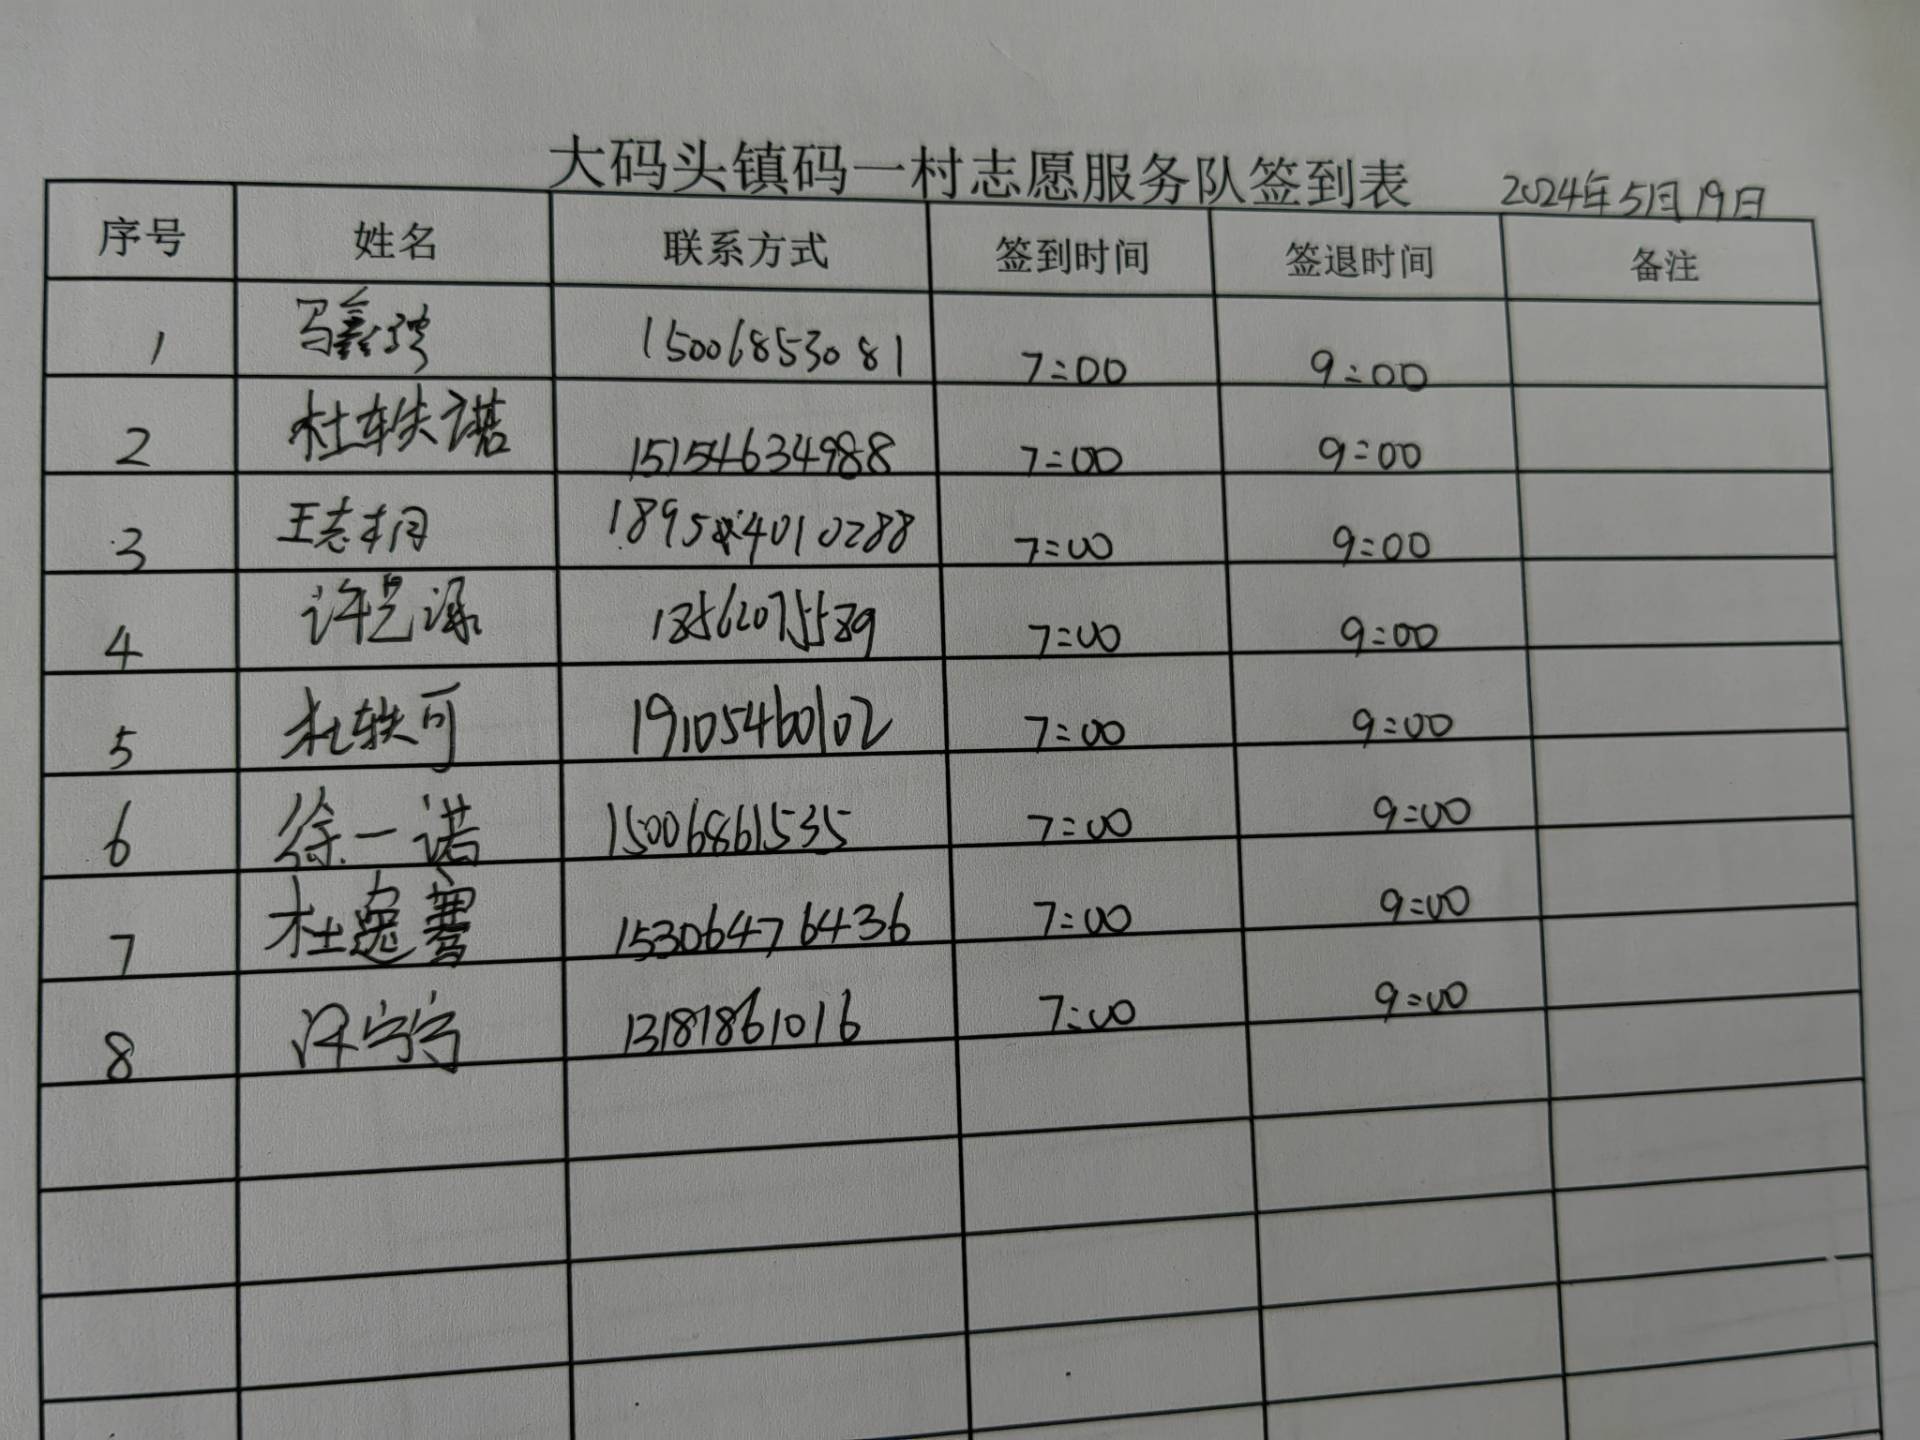 大码头镇码一村志愿服务队签到表 2024年5月19日
序号 姓名 联系方式 签到时间 签退时间 备注
1 马鑫 15006853081 7:00 9:00
2 杜轶诺 15154634988 7:00 9:00
3 王志 7:00 9:00
4 许 18562075589 7:00 9:00
5 杜轶可 19105460102 7:00 9:00
6 徐一诺 15006861535 7:00 9:00
7 杜逸骞 15306476436 7:00 9:00
8 宁宁 13181861016 7:00 9:00